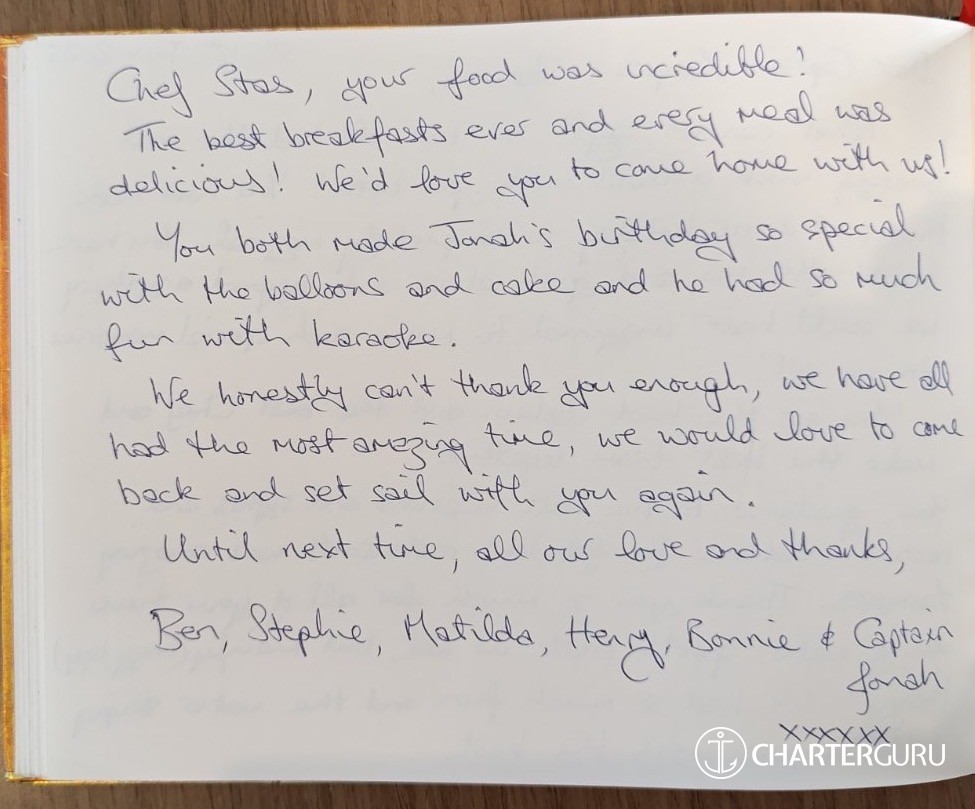 Chef Stas, your food was incredible!
The best breakfasts ever and every meal was
delicious! We'd love you to come home with us!
You both made Jonah's birthday so special
with the balloons and cake and he had so much
fun with karaoke.
We honestly can't thank you enough, we have all
had the most amazing time, we would love to come
back and set sail with you again.
Until next time, all our love and thanks,
Ben, Stephie, Matilda, Henry, Bonnie & Captain
Jonah
xxxxxx
CHARTERGURU